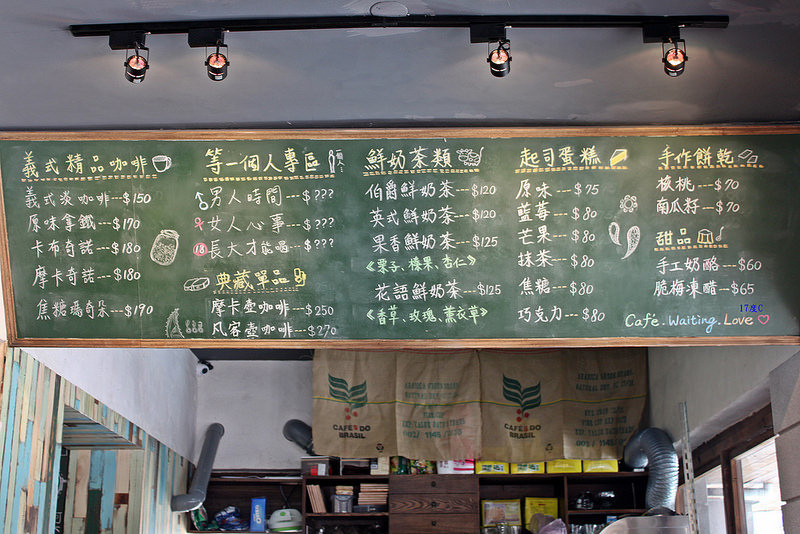 義式精品咖啡
義式淡咖啡---$150
原味拿鐵---$170
卡布奇諾---$180
摩卡奇諾---$180
焦糖瑪奇朵---$190
等一個人專區
男人時間---$???
女人心事---$???
18 長大才能喝---$???
典藏單品
摩卡壺咖啡---$250
凡客壺咖啡---$270
鮮奶茶類
伯爵鮮奶茶---$120
英式鮮奶茶---$120
果香鮮奶茶---$125
《栗子、榛果、杏仁》
花語鮮奶茶---$125
《香草、玫瑰、薰衣草》
起司蛋糕
原味---$75
藍莓---$80
芒果---$80
抹茶---$80
焦糖---$80
巧克力---$80
手作餅乾
核桃---$70
南瓜籽---$70
甜品
手工奶酪---$60
脆梅凍醋---$65
17度C
Cafe.Waiting.Love
CAFÉS DO
BRASIL
CAFÉS DO
BRASIL